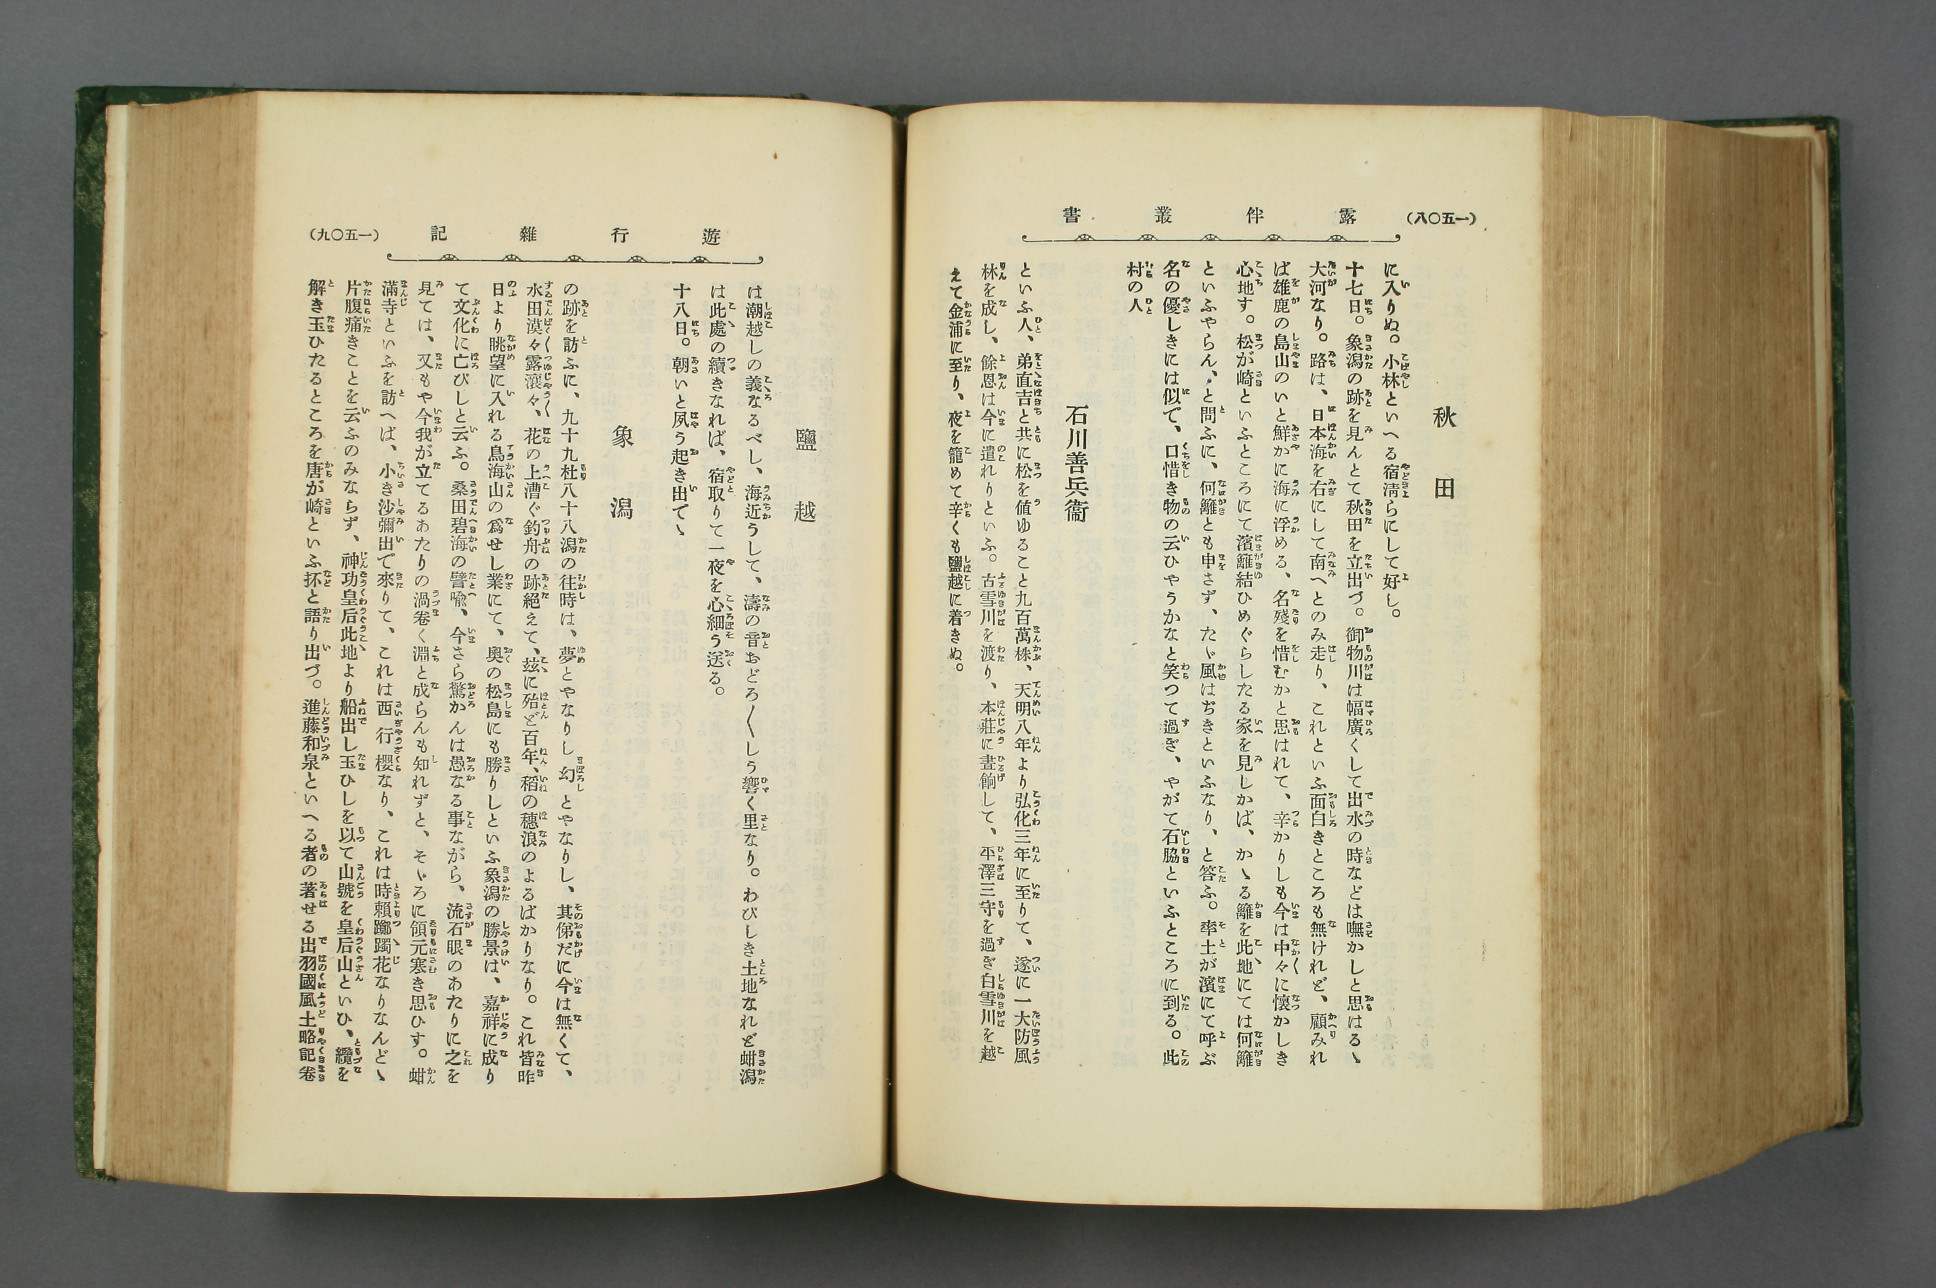 (一五〇八)
露伴叢書
秋田
に入りぬ。小林といへる宿淸らにして好し。
十七日。象潟の跡を見んとて秋田を立出づ。御物川は幅廣くして出水の時などは嘸かしと思はるゝ
大河なり。路は、日本海を右にして南へとのみ走り、これといふ面白きところも無けれど、顧みれ
ば雄鹿の島山のいと鮮かに海に浮める、名殘を惜むかと思はれて、辛かりしも今は中々に懷かしき
心地す。松が崎といふところにて濱籬結ひめぐらしたる家を見しかば、かゝる籬を此地にては何籬
といふやらん、と問ふに、何籬とも申さず、たゞ風はぢきといふなり、と答ふ。率土が濱にて呼ぶ
名の優しきには似で、口惜き物の云ひやうかなと笑つて過ぎ、やがて石脇といふところに到る。此
村の人
石川善兵衞
といふ人、弟直吉と共に松を値ゆること九百萬株、天明八年より弘化三年に至りて、遂に一大防風
林を成し、餘恩は今に遺れりといふ。古雪川を渡り、本莊に晝餉して、平澤三守を過ぎ白雪川を越
えて金浦に至り、夜を籠めて辛くも鹽越に着きぬ。
遊行雜記
(一五〇九)
鹽越
は潮越しの義なるべし、海近うして、濤の音おどろ〳〵しう響く里なり。わびしき土地なれど蚶潟
は此處の續きなれば、宿取りて一夜を心細う送る。
十八日。朝いと夙う起き出でゝ
象潟
の跡を訪ふに、九十九杜八十八潟の往時は、夢とやなりし幻とやなりし、其俤だに今は無くて、
水田漠々露瀼々、花の上漕ぐ釣舟の跡絕えて、玆に殆ど百年、稻の穗浪のよるばかりなり。これ皆昨
日より眺望に入れる鳥海山の爲せし業にて、奧の松島にも勝りしといふ象潟の勝景は、嘉祥に成り
て文化に亡びしと云ふ。桑田碧海の譬喩、今さら驚かんは愚なる事ながら、流石眼のあたりに之を
見ては、又もや今我が立てるあたりの渦卷く淵と成らんも知れずと、そゞろに領元寒き思ひす。蚶
滿寺といふを訪へば、小き沙彌出で來りて、これは西行櫻なり、これは時賴躑躅花なりなんどゝ
片腹痛きことを云ふのみならず、神功皇后此地より船出し玉ひしを以て山號を皇后山といひ、纜を
解き玉ひたるところを唐が崎といふ抔と語り出づ。進藤和泉といへる者の著せる出羽國風土略記卷